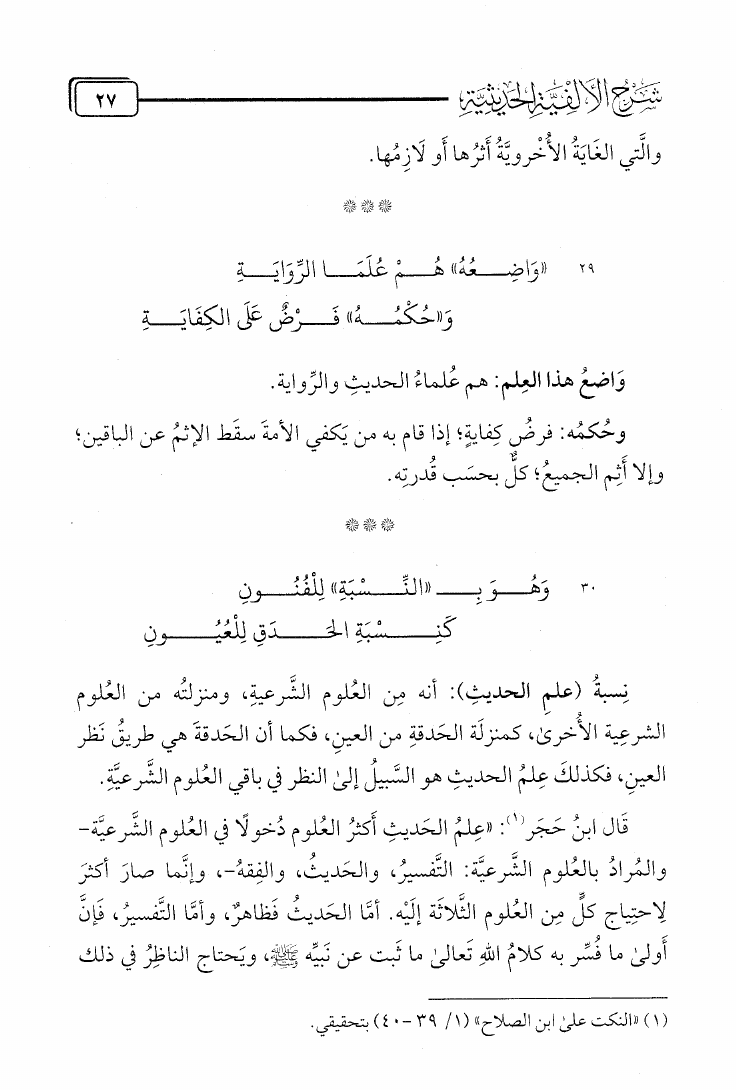 شَرْحُ الأَلْفِيَّةِ الحَدِيثِيَّةِ
٢٧
والَّتي الغَايَةُ الأُخْرويَّةُ أثرُها أو لَازِمُها.
٢٩ «وَاضِـــعُهُ» هُـــمْ عُلَمَـــا الرِّوَايَـــةِ
وَ«حُكْمُـــهُ» فَـــرْضٌ عَلَى الكِفَايَـــةِ
وَاضعُ هذا العِلم: هم عُلماءُ الحديثِ والرِّواية.
وحُكمُه: فرضُ كِفايةٍ؛ إذا قام به من يَكفي الأمةَ سقَط الإثمُ عن الباقين؛
وإلا أَثِم الجميعُ؛ كلٌّ بحسَب قُدرتِه.
٣٠ وَهُـــوَ بِـــ «النِّـــسْبَةِ» لِلْفُنُـــونِ
كَنِـــسْبَةِ الحَـــدَقِ لِلْعُيُـــونِ
نِسبةُ (علمِ الحديثِ): أنه مِن العُلوم الشَّرعيةِ، ومنزلتُه من العُلوم
الشرعِية الأُخرىٰ، كمنزلَة الحَدقةِ من العينِ، فكما أن الحَدقةَ هي طريقُ نَظر
العينِ، فكذلكَ عِلمُ الحديثِ هو السَّبيلُ إلىٰ النظر في باقي العُلوم الشَّرعيَّةِ.
قَال ابنُ حَجَر(١): «عِلمُ الحَديثِ أكثرُ العلُوم دُخولًا في العُلوم الشَّرعيَّة-
والمُرادُ بالعُلوم الشَّرعيَّة: التَّفسيرُ، والحَديثُ، والفِقهُ-، وإنَّما صارَ أكثرَ
لِاحتِياجِ كلٍّ مِن العُلوم الثَّلاثَة إلَيْه. أمَّا الحَديثُ فَظاهرٌ، وأمَّا التَّفسيرُ، فَإنَّ
أَولىٰ ما فُسِّر به كلامُ اللهِ تَعالىٰ ما ثَبت عن نَبيِّه ﷺ، ويَحتاج الناظِرُ في ذلك
(١) «النكت علىٰ ابن الصلاح» (١/ ٣٩ -٤٠) بتحقيقي.